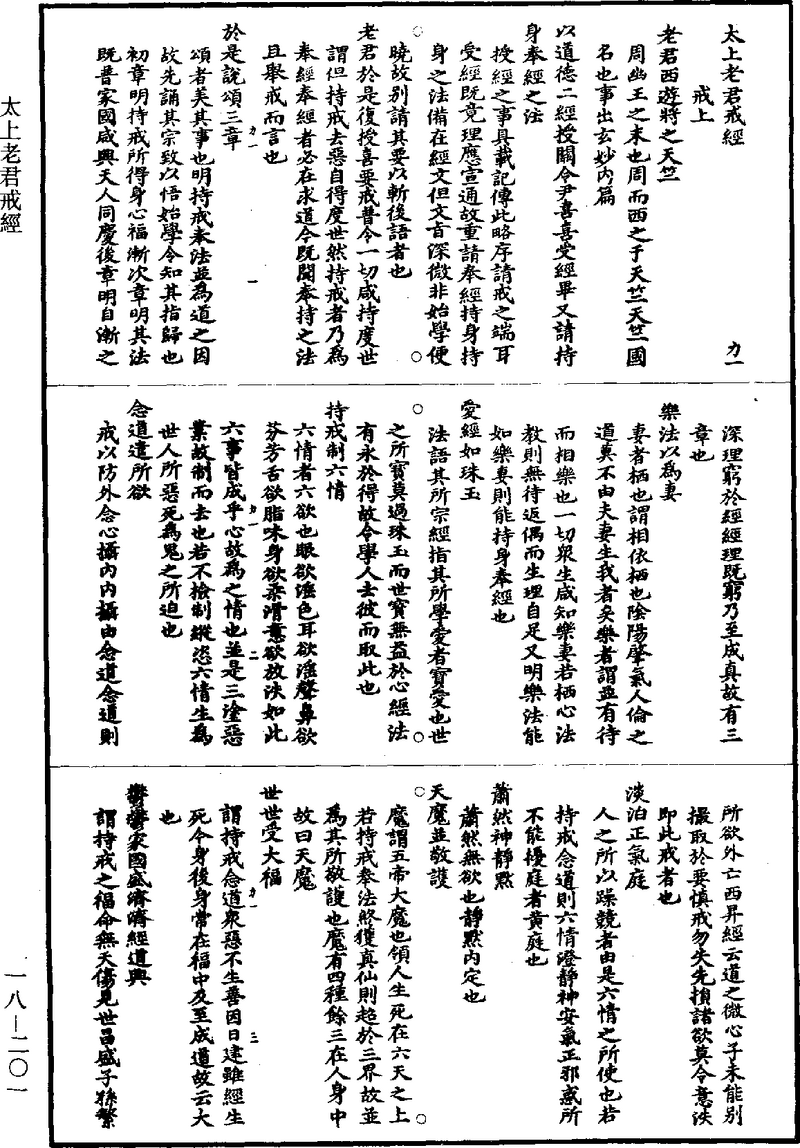 太上老君戒經
力一
戒上
老君西遊將之天竺
周幽王之末也周而西之于天竺天竺國
名也事出玄妙內篇
以道德二經授關令尹喜喜受經畢又請持
身奉經之法
授經之事具載記傳此略序請戒之端耳
受經既竟理應宣通故重請奉經持身持
身之法備在經文但文旨深微非始學便
曉故別請其要以斬後語者也
老君於是復授喜要戒普令一切咸持度世
謂但持戒去惡自得度世然持戒者乃為
奉經奉經者必在求道今既聞奉持之法
且舉戒而言也
力一 一
於是說頌三章
頌者美其事也明持戒奉法並為道之因
故先誦其宗致以悟始學令知其指歸也
初章明持戒所得身心福漸次章明其法
既普家國咸興天人同慶後章明自漸之
深理窮於經經理既窮乃至成真故有三
章也
樂法以為妻
妻者栖也謂相依栖也陰陽肇氣人倫之
道莫不由夫妻生我者矣樂者謂並有待
而相樂也一切眾生咸知樂妻若栖心法
教則無待返偶而生理自足又明樂法能
如樂妻則能持身奉經也
愛經如珠玉
法語其所宗經指其所學愛者寶愛也世
之所寶莫過珠玉而世寶無益於心經法
有永於得故令學人去彼而取此也
持戒制六情
六情者六欲也眼欲淫色耳欲淫聲鼻欲
芬芳舌欲脂味身欲柔滑意欲放泆如此
力一 二
六事皆成乎心故為之情也並是三塗惡
業故制而去也若不撿制縱恣六情生為
世人所惡死為鬼之所迫也
念道遣所欲
戒以防外念心攝內內攝由念道念道則
所欲外亡西昇經云道之微心子未能別
撮取於要慎戒勿失先損諸欲莫令意泆
即此戒者也
淡泊正氣庭
人之所以躁競者由是六情之所使也若
持戒念道則六情澄靜神安氣正邪惑所
不能擾庭者黃庭也
蕭然神靜默
蕭然無欲也靜默內定也
天魔並敬護
魔謂五帝大魔也領人生死在六天之上
若持戒奉法終獲真仙則超於三界故並
為其所敬護也魔有四種餘三在人身中
故曰天魔
世世受大福
力一 三
謂持戒念道眾惡不生善因日建雖經生
死今身後身常在福中及至成道故云大
也
欝欝家國盛濟濟經道興
謂持戒之福命無夭傷見世昌盛子孫繁
太上老君戒經
一八—二〇一